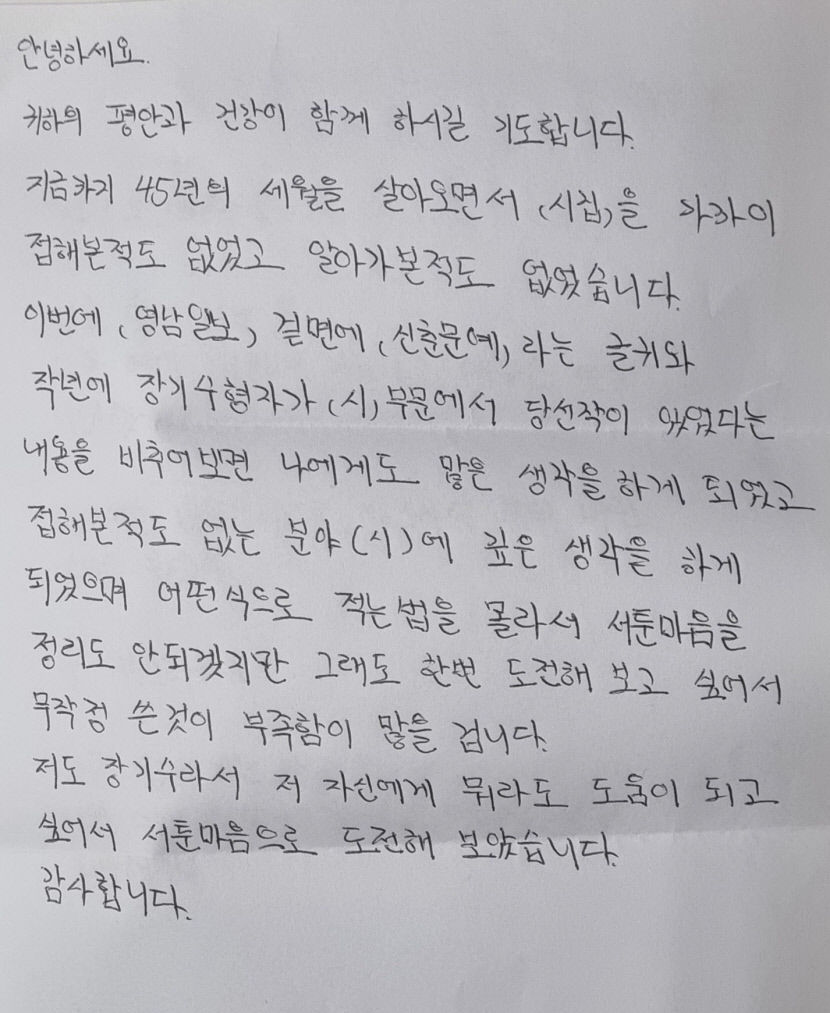 안녕하세요.
귀하의 평안과 건강이 함께 하시길 기도합니다.
지금까지 45년의 세월을 살아오면서 (시집)을 가까이
접해본적도 없었고 알아가본적도 없었습니다.
이번에 (영남일보) 겉면에 (신춘문예) 라는 글귀와
작년에 장기수형자가 (시) 부문에서 당선작이 있었다는
내용을 비추어보면 나에게도 많은 생각을 하게 되었고
접해본적도 없는 분야 (시)에 깊은 생각을 하게
되었으며 어떤식으로 적는법을 몰라서 서툰마음을
정리도 안되겠지만 그래도 한번 도전해 보고 싶어서
무작정 쓴것이 부족함이 많을 겁니다.
저도 장기수라서 저 자신에게 뭐라도 도움이 되고
싶어서 서툰마음으로 도전해 보았습니다.
감사합니다.